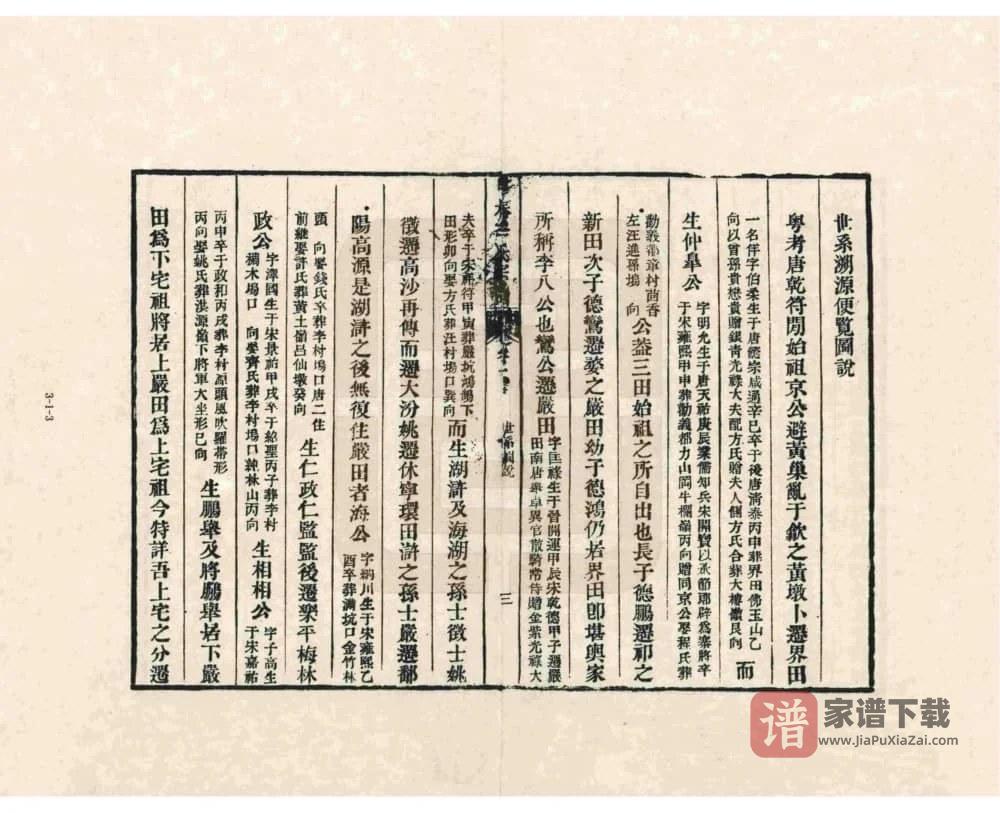 世系溯源便覧圖說
粤考唐乾符間始祖京公避黃巢亂于歙之黃墩卜遷界田
一名佯字伯柔生于唐懿宗咸通辛巳卒于後唐清泰丙申葬界田佛玉山乙
向以曾孫貴懋貴贈銀青光祿大夫配方氏贈夫人側方氏合葬大樁艮向
而
生仲臯公
字明允生于唐天祐庚辰業儒知兵宋開寶以承節郎辟為寨將卒
于宋雍熙甲申葬勳義都力山岡牛欄嶺丙向贈同京公娶程氏葬
勳義都章村茴香
左汪進孫塢 向
公葢三田始祖之所自出也長子德鵬遷祁之
新田次子德鸞遷婺之嚴田幼子德鴻仍居界田卽堪輿家
所稱李八公也鸞公遷嚴田
字匡祿生于晉開運甲辰宋乾德甲子遷嚴
田南唐舉卓異官散騎常侍贈金紫光祿大
三
夫卒于宋祥符甲寅葬嚴坑鴻鵠下
田形卯向娶方氏葬汪村塲口巽向
而生湖滸及海湖之孫士徵士姚
徵遷高沙再傳而遷大汾姚遷休寧環田滸之孫士嚴遷鄱
陽高源是湖滸之後無復住嚴田者海公
字納川生于宋雍熙乙
酉卒葬滿坑口金竹林
頭 向娶錢氏卒葬李村塲口唐二住
前繼娶許氏葬黄土嶺呂仙墩癸向
生仁政仁監監後遷樂平梅林
政公
字澤國生于宋景祐甲戌卒于紹聖丙子葬李村
楊木塲口 向娶齊氏葬李村塲口乾林山丙向
生相相公
字子高生
于宋嘉祐
丙申卒于政和丙戌葬李村源頭風吹羅帶形
丙向娶姚氏葬洪源嶺下將軍大坐形巳向
生鵬舉及將鵬舉居下嚴
田為下宅祖將居上嚴田為上宅祖今特詳吾上宅之分遷
3-1-3
谱
家谱下载
www.JiaPuXiaZai.com